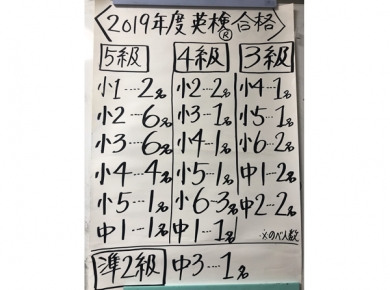 〈2019年度英検®合格〉
5級 4級 3級
小1…2名 小2…2名 小4…1名
小2…6名 小3…1名 小5…1名
小3…6名 小4…1名 小6…2名
小4…4名 小5…1名 中1…2名
小5…1名 小6…3名 中2…2名
中1…1名 中1…1名 ※のべ人数
準2級 中3…1名